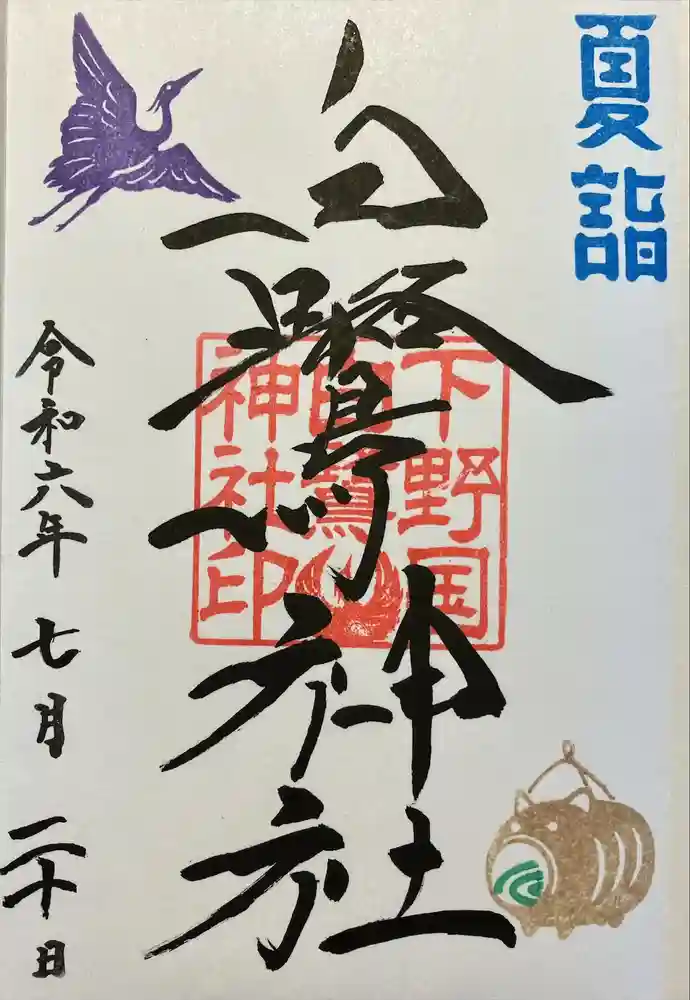 夏詣
白鷺神社
下野国
白鷺
神社印
令和六年 七月 二十日